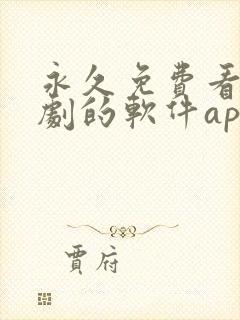 永久免費看
劇的軟件ap
賈府